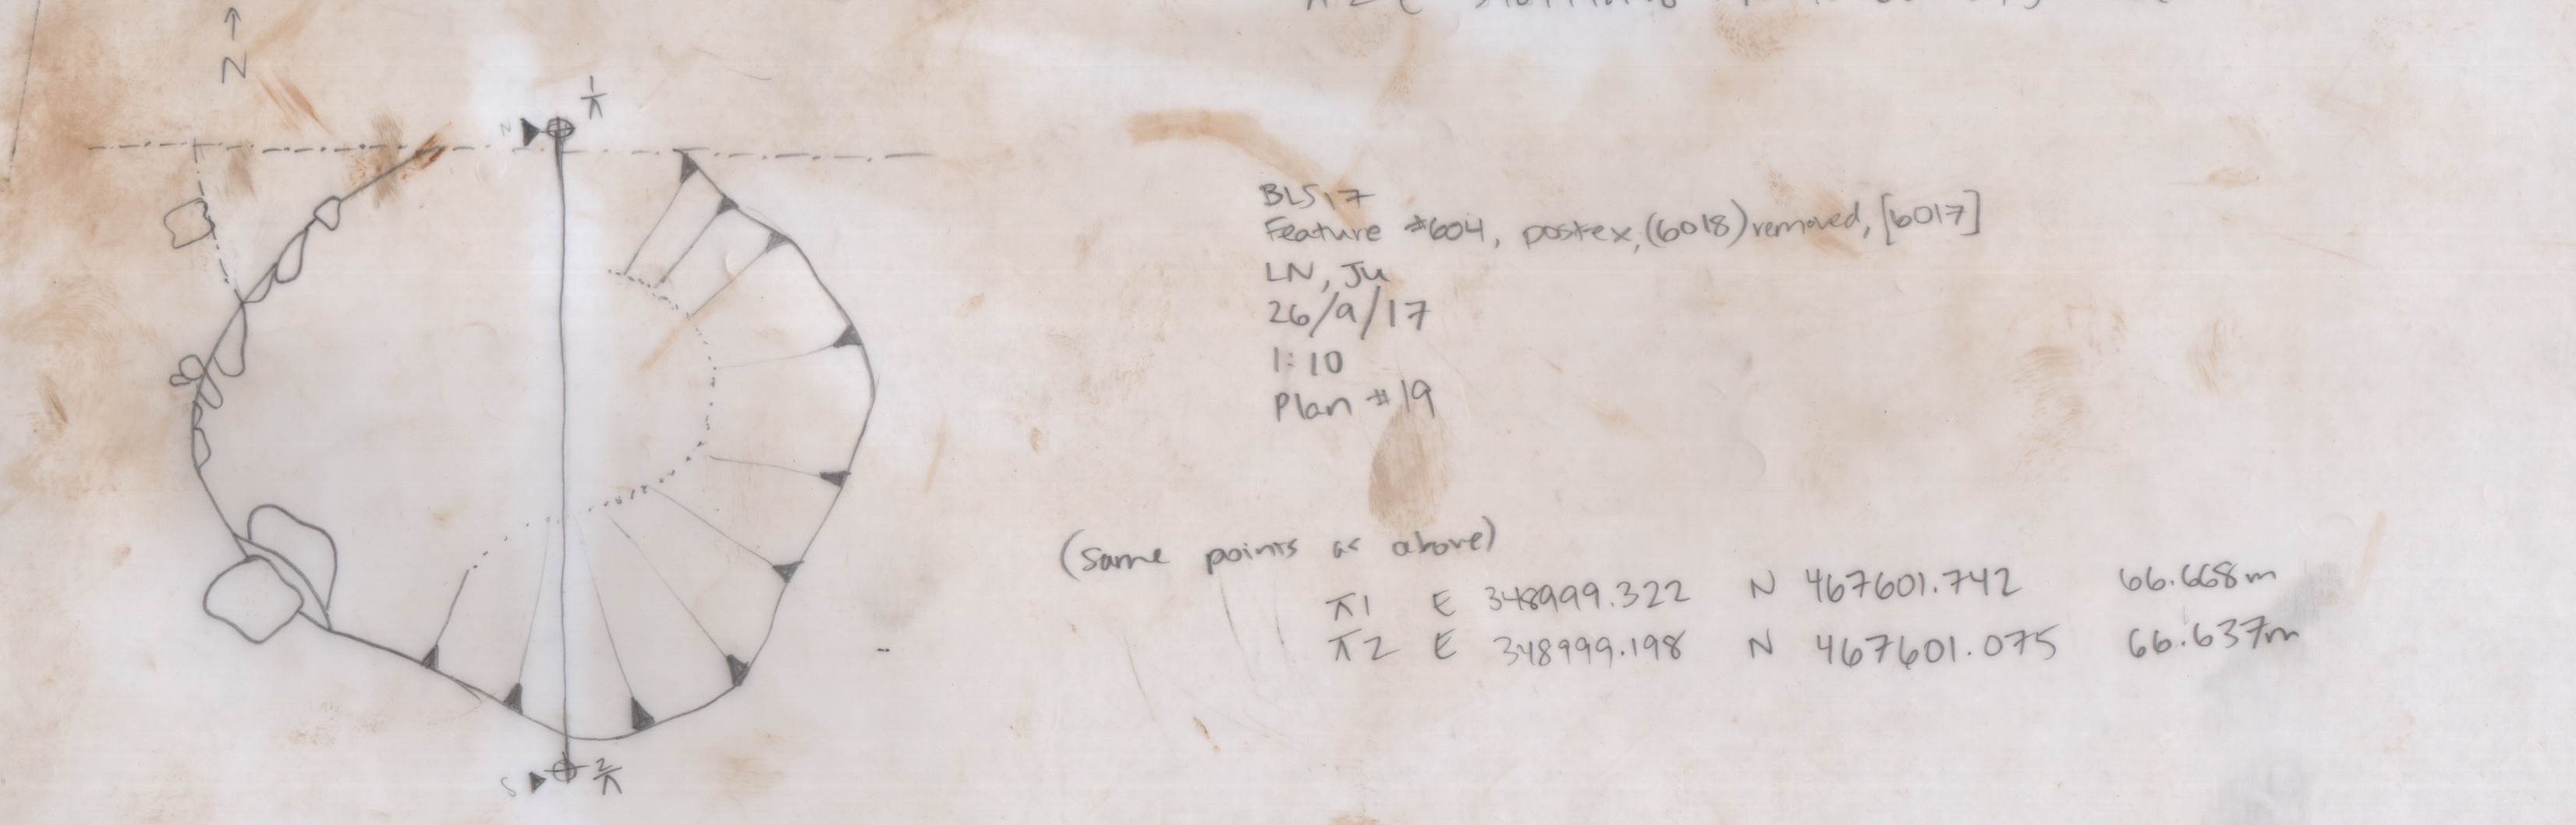 N
1
N
BLS17
Feature #604, postex, (6018) removed, [6017]
LN, JU
26/9/17
1:10
Plan #19
(same points as above)
⊼1 E 348999.322 N 467601.742 66.668m
⊼2 E 348999.198 N 467601.075 66.637m
S
2